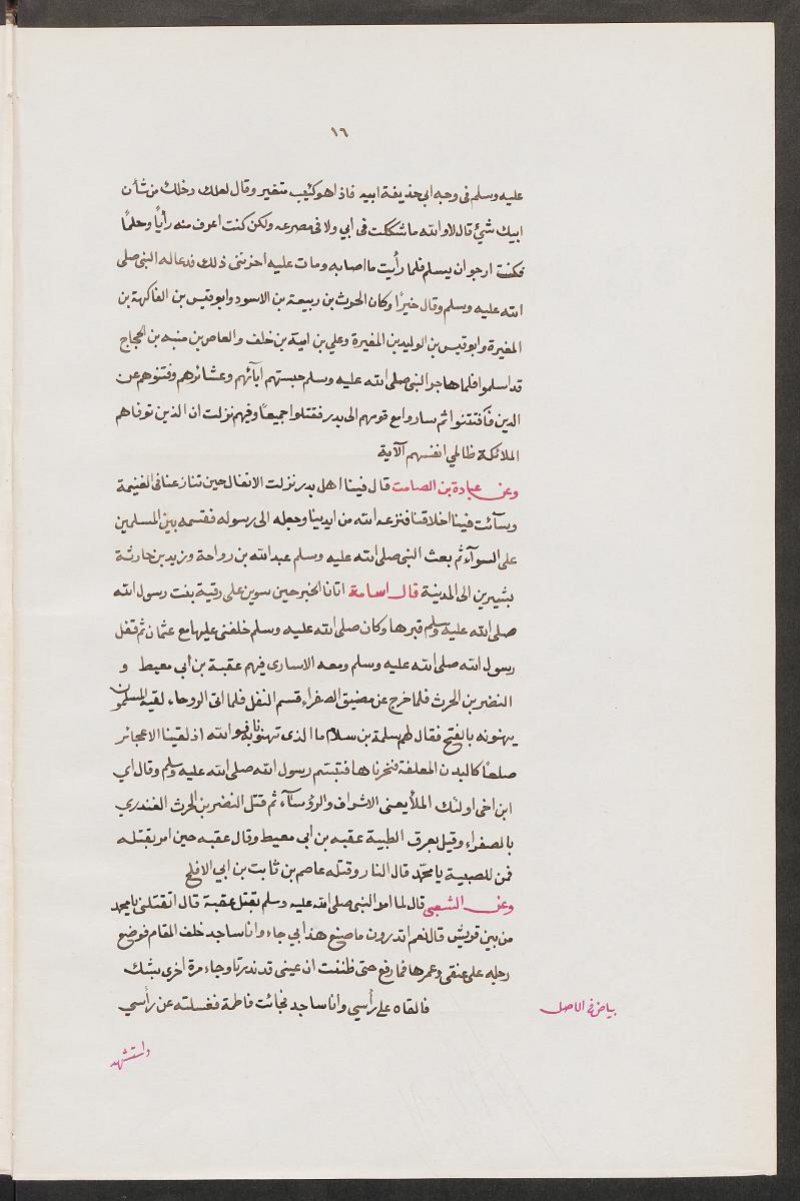 ١٦
عليه وسلم فى وجه ابى حذيفة ابيه فاذا هو كئيب متغير وقال لعلك دخلك من شأن
ابيك شئ قال لا والله ما شككت فى ابي ولا فى مصرعه ولكن كنت اعرف منه رأيًا وحلمًا
فكنت ارجو ان يسلم فلما رأيت ما اصابه ومات عليه احزننى ذلك فدعا له النبى صلى
الله عليه وسلم وقال خيرًا وكان الحرث بن ربيعة بن الاسود وابو قيس بن الفاكهة بن
المغيرة وابو قيس بن الوليد بن المغيرة وعلي بن امية بن خلف والعاص بن منبه بن الحجاج
قد اسلموا فلما هاجر النبى صلى الله عليه وسلم حبستهم ابآئهم وعشائرهم وفتنوهم عن
الدين فأفتتنوا ثم ساروا مع قومهم الى بدر فقتلوا جميعًا وفيهم نزلت ان الذين توفاهم
الملائكة ظالمي انفسهم الآية
وعن عبادة بن الصامت قال فينا اهل بدر نزلت الانفال حين تنازعنا فى الغنيمة
وسآئت فينا اخلاقنا فنزعه الله من ايدينا وجعله الى رسوله فقسمه بين المسلمين
على السوآء ثم بعث النبى صلى الله عليه وسلم عبد الله بن رواحة وزيد بن حارثة
بشيرين الى المدينة قال اسامة اتانا الخبر حين سوين على رقية بنت رسول الله
صلى الله عليه وسلم قبرها وكان صلى الله عليه وسلم خلفنى عليها مع عثمان ثم قفل
رسول الله صلى الله عليه وسلم ومعه الاسارى فيهم عقبة بن أبي معيط و
النضر بن الحرث فلما خرج عن مضيق الصفراء قسم النفل فلما اتى الروحاء لقيه المسلمون
يهنونه بالفتح فقال لهم سلمة بن سلام ما الذى تهنونا به فوالله اذ لقينا الا عجائز
صلعًا كالبدن المعلفة فنحرناها فتبسم رسول الله صلى الله عليه وسلم وقال اي
ابن اخى اولئك الملأ يعنى الاشراف والرؤسآء ثم قتل النضر بن الحرث الغندري
بالصفراء وقيل بعرق الظبية عقبه بن أبى معيط وقال عقبه حين امر بقتله
فمن للصبية يا محمد قال النار وقتله عاصم بن ثابت بن ابي الافلح
وعن الشعبى قال لما امر النبى صلى الله عليه وسلم بقتل عقبة قال اتقتلنى يا محمد
من بين قريش قال نعم اتدرون ما صنع هذا بي جاء وانا ساجد خلف المقام فوضع
رجله على عنقى وغمزها فما رفع حتى ظننت ان عينى قد ندرتا وجاء مرة اخرى بشك
فالقاه على رأسي وانا ساجد فجائت فاطمة فغسلته عن رأسي
بياض فى الاصل
واستشهد